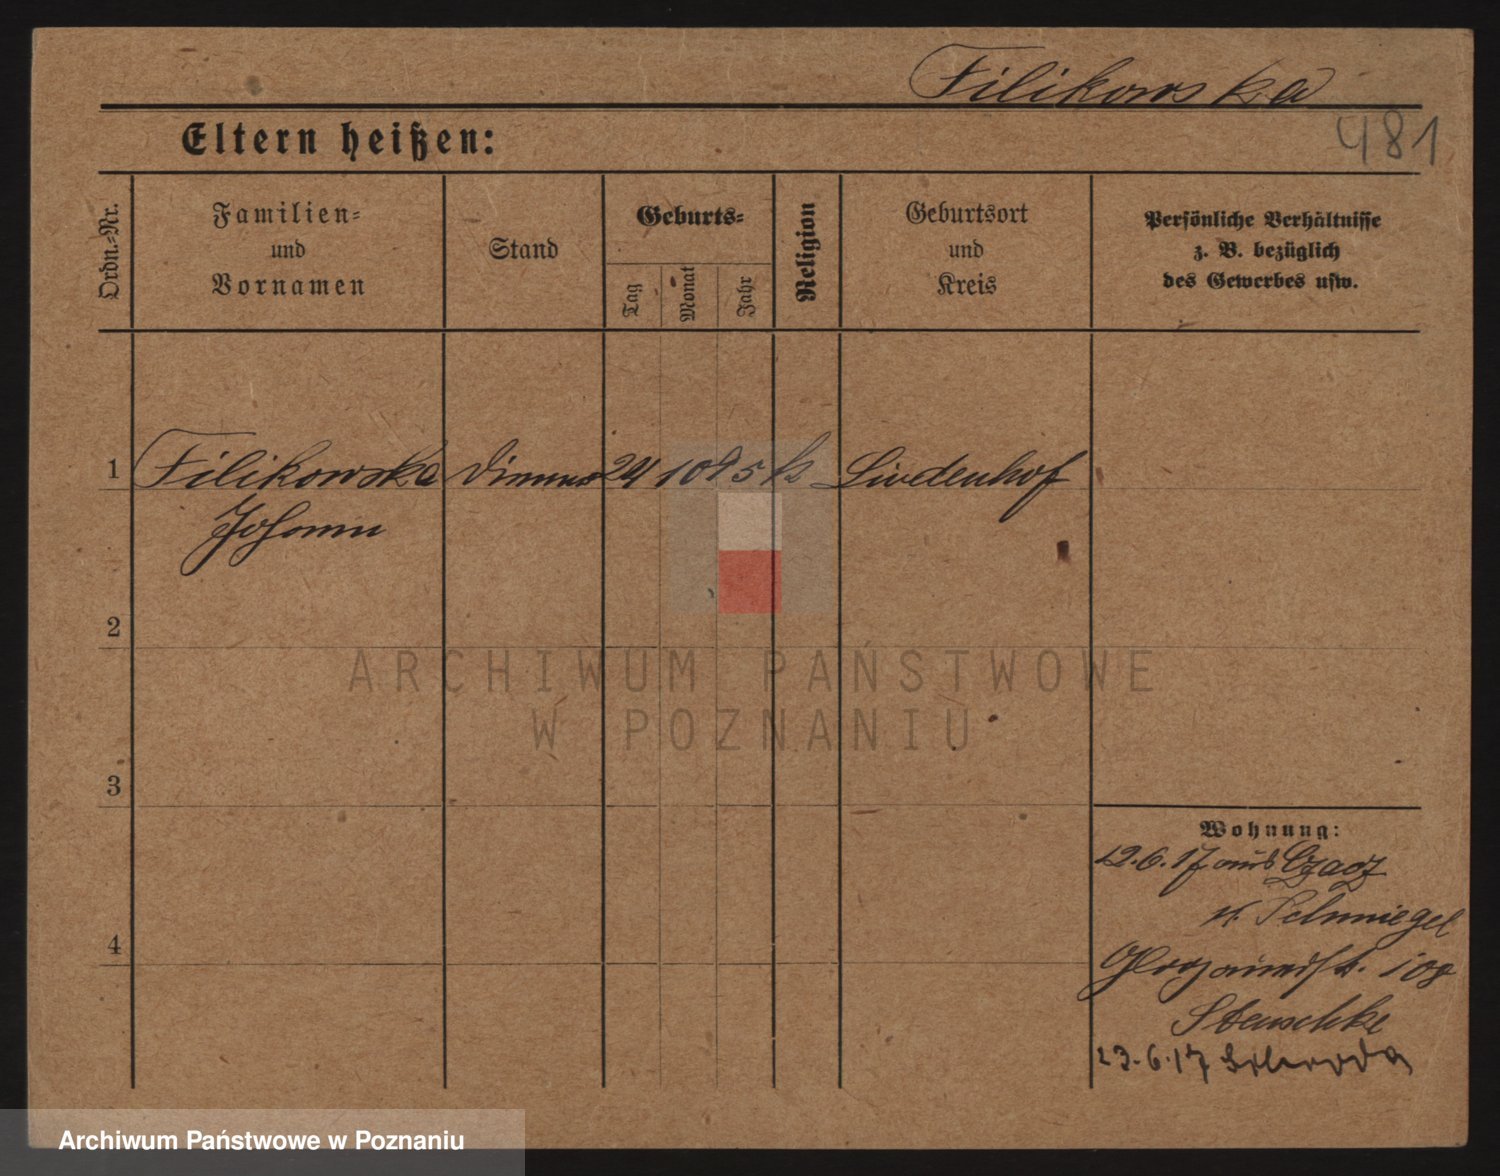 Filikowska
481
Eltern heißen:
Ordn.-Nr.
Familien-
und
Vornamen
Stand
Geburts-
Tag
Monat
Jahr
Religion
Geburtsort
und
Kreis
Persönliche Verhältnisse
z. B. bezüglich
des Gewerbes usw.
1 Filikowska 24 10 95 k Lindenhof
Johann
2
3
4
Wohnung:
12.6.17 aus Czacz
Schmiegel
108
Stenschke
23.6.17 Schroda
ARCHIWUM PAŃSTWOWE
W POZNANIU
Archiwum Państwowe w Poznaniu